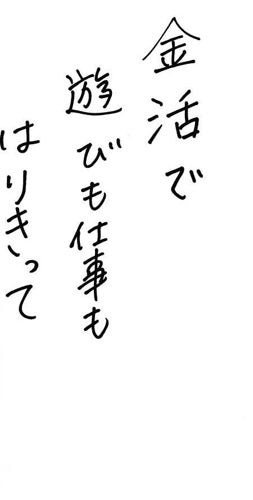 金活で
遊びも仕事も
はりきって